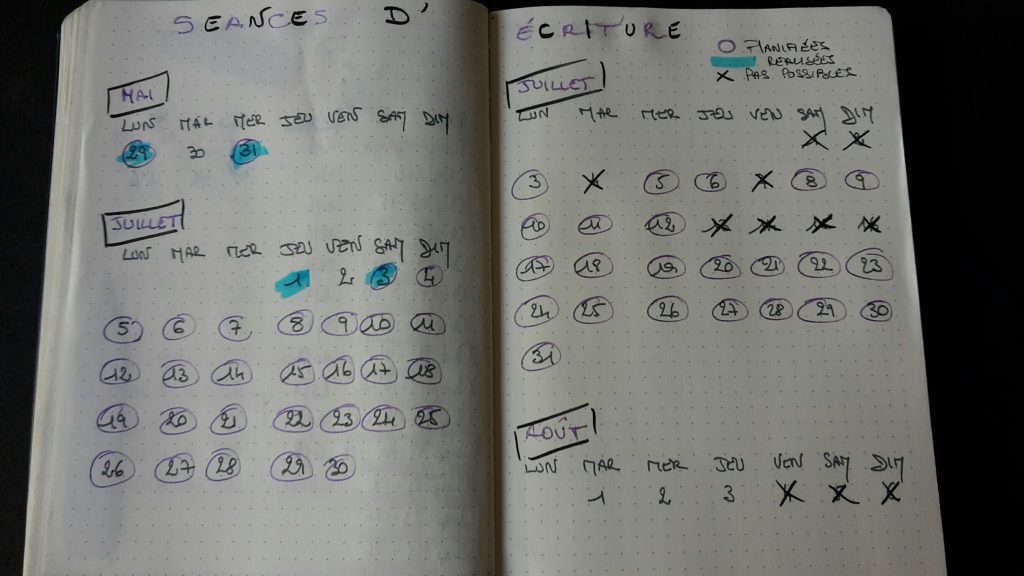 SEANCES D' ÉCRITURE
MAI
LUN MAR MER JEU VEN SAM DIM
29 30 31
JUILLET
LUN MAR MER JEU VEN SAM DIM
1 2 3 4
5 6 7 8 9 10 11
12 13 14 15 16 17 18
19 20 21 22 23 24 25
26 27 28 29 30
PLANIFIÉES
RÉALISÉES
X PAS POSSIBLES
JUILLET
LUN MAR MER JEU VEN SAM DIM
3 5 6 8 9
10 11 12
17 18 19 20 21 22 23
24 25 26 27 28 29 30
31
AOÛT
LUN MAR MER JEU VEN SAM DIM
1 2 3